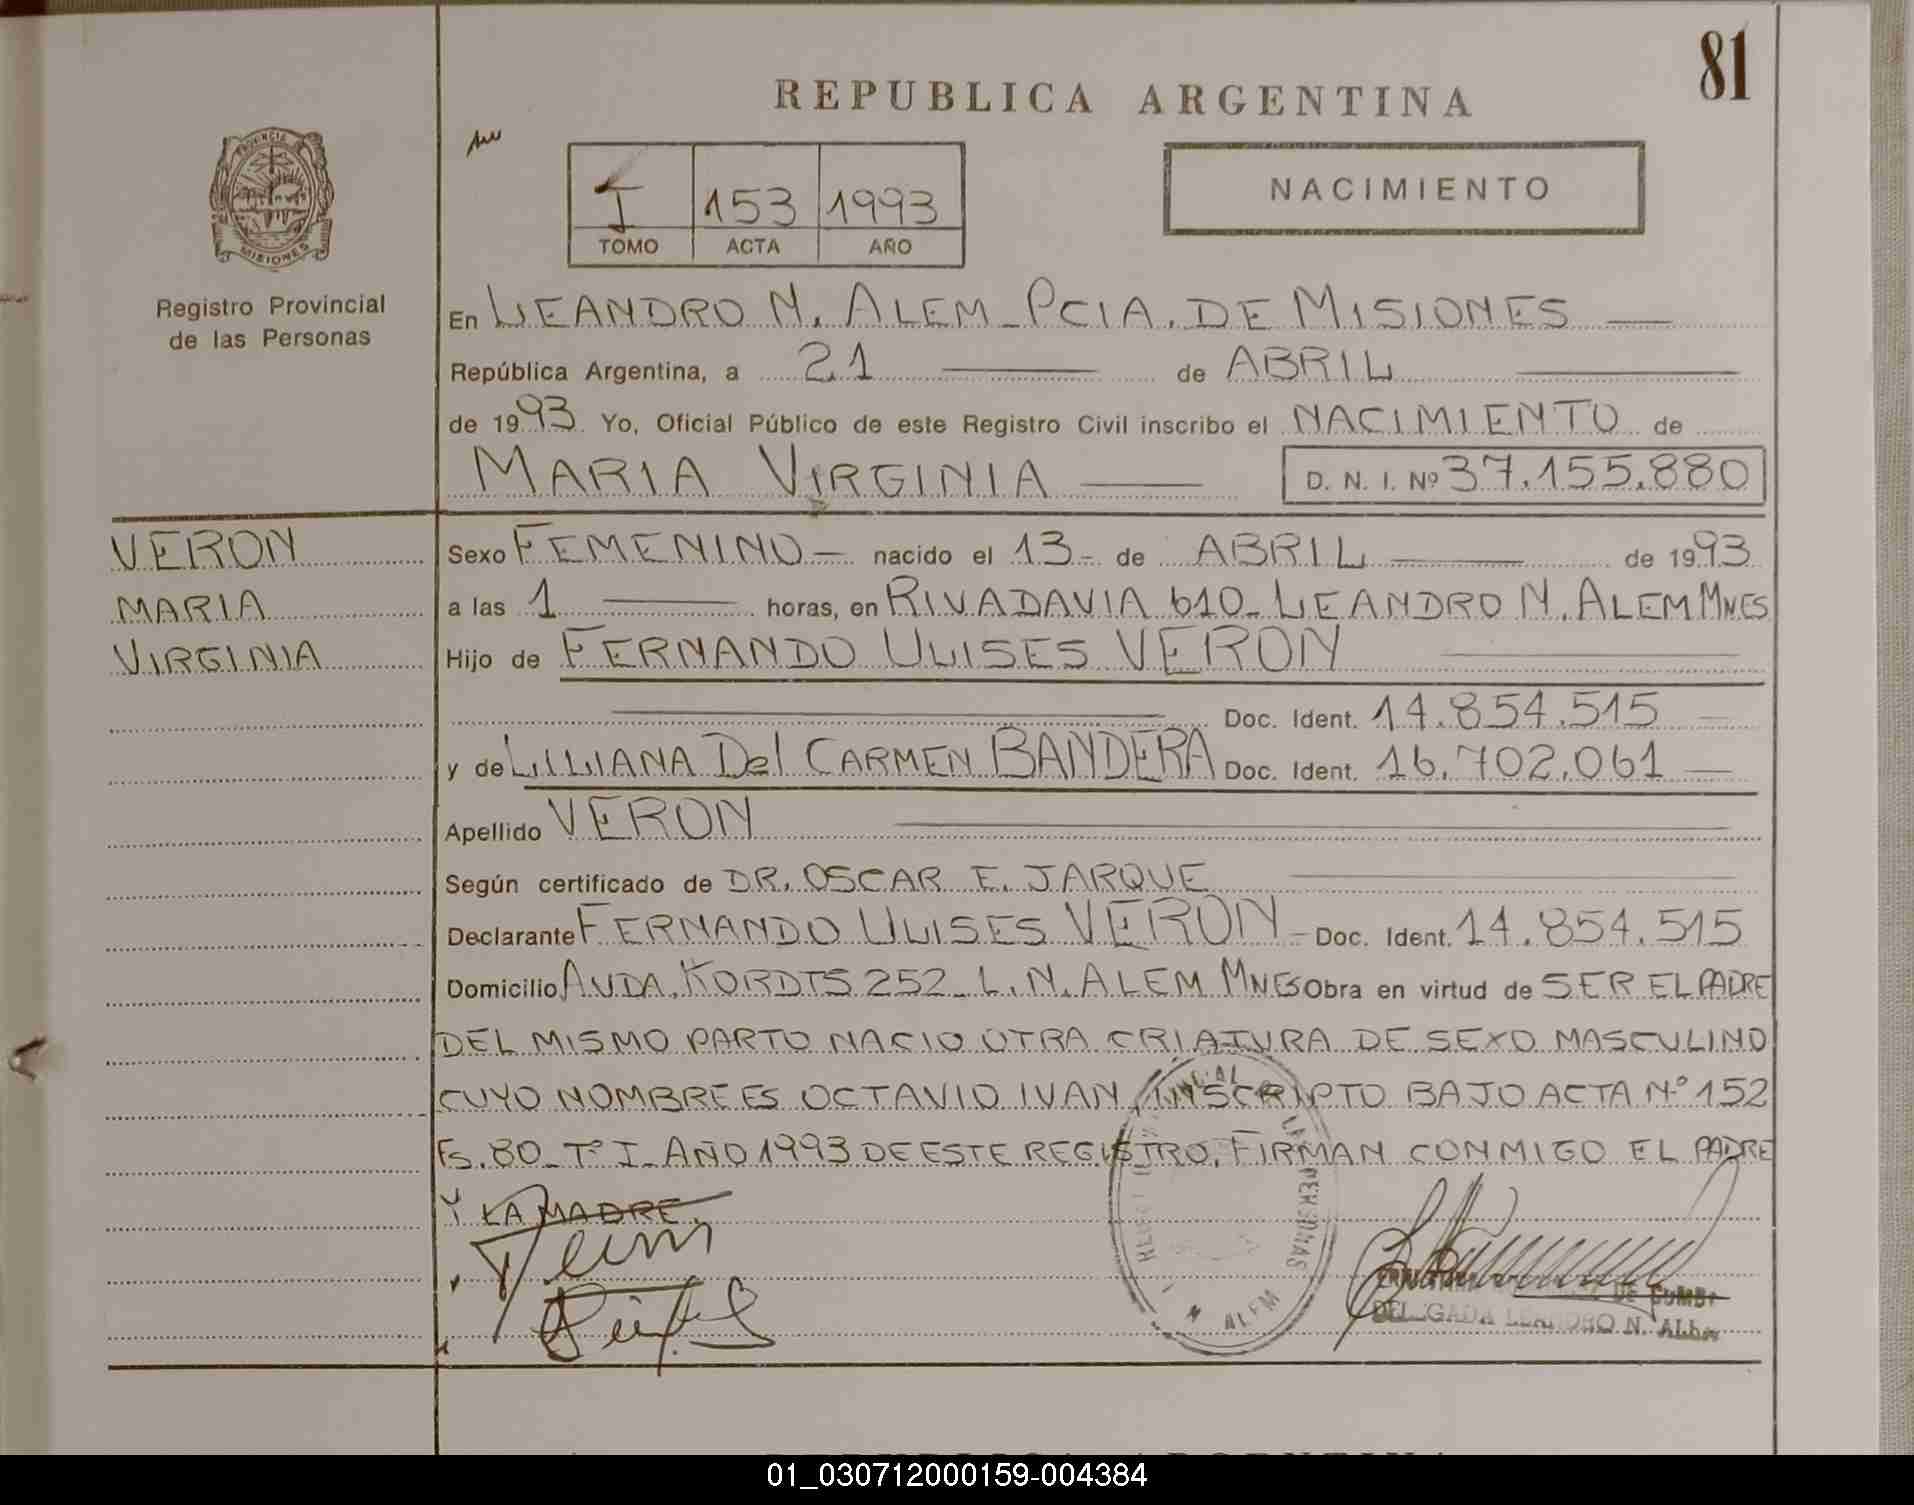 81
REPUBLICA ARGENTINA
PROVINCIA DE
MISIONES
Registro Provincial
de las Personas
I 153 1993
TOMO ACTA AÑO
NACIMIENTO
En LEANDRO N. ALEM - PCIA. DE MISIONES
República Argentina, a 21 de ABRIL
de 1993 Yo, Oficial Público de este Registro Civil inscribo el NACIMIENTO de
MARIA VIRGINIA D. N. I. Nº 37.155.880
VERON
MARIA
VIRGINIA
Sexo FEMENINO - nacido el 13 - de ABRIL de 1993
a las 1 horas, en RIVADAVIA 610 - LEANDRO N. ALEM MNES
Hijo de FERNANDO ULISES VERON
Doc. Ident. 14.854.515
y de LILIANA Del CARMEN BANDERA Doc. Ident. 16.702.061
Apellido VERON
Según certificado de DR. OSCAR E. JARQUE
Declarante FERNANDO ULISES VERON - Doc. Ident. 14.854.515
Domicilio AVDA. KORDTS 252 - L. N. ALEM MNES Obra en virtud de SER EL PADRE
DEL MISMO PARTO NACIO OTRA CRIATURA DE SEXO MASCULINO
CUYO NOMBRE ES OCTAVIO IVAN, INSCRIPTO BAJO ACTA Nº 152
Fs. 80 - Tº I - AÑO 1993 DE ESTE REGISTRO, FIRMAN CONMIGO EL PADRE
Y LA MADRE.
N. ALEM
LEANDRO N. ALEM
01_030712000159-004384